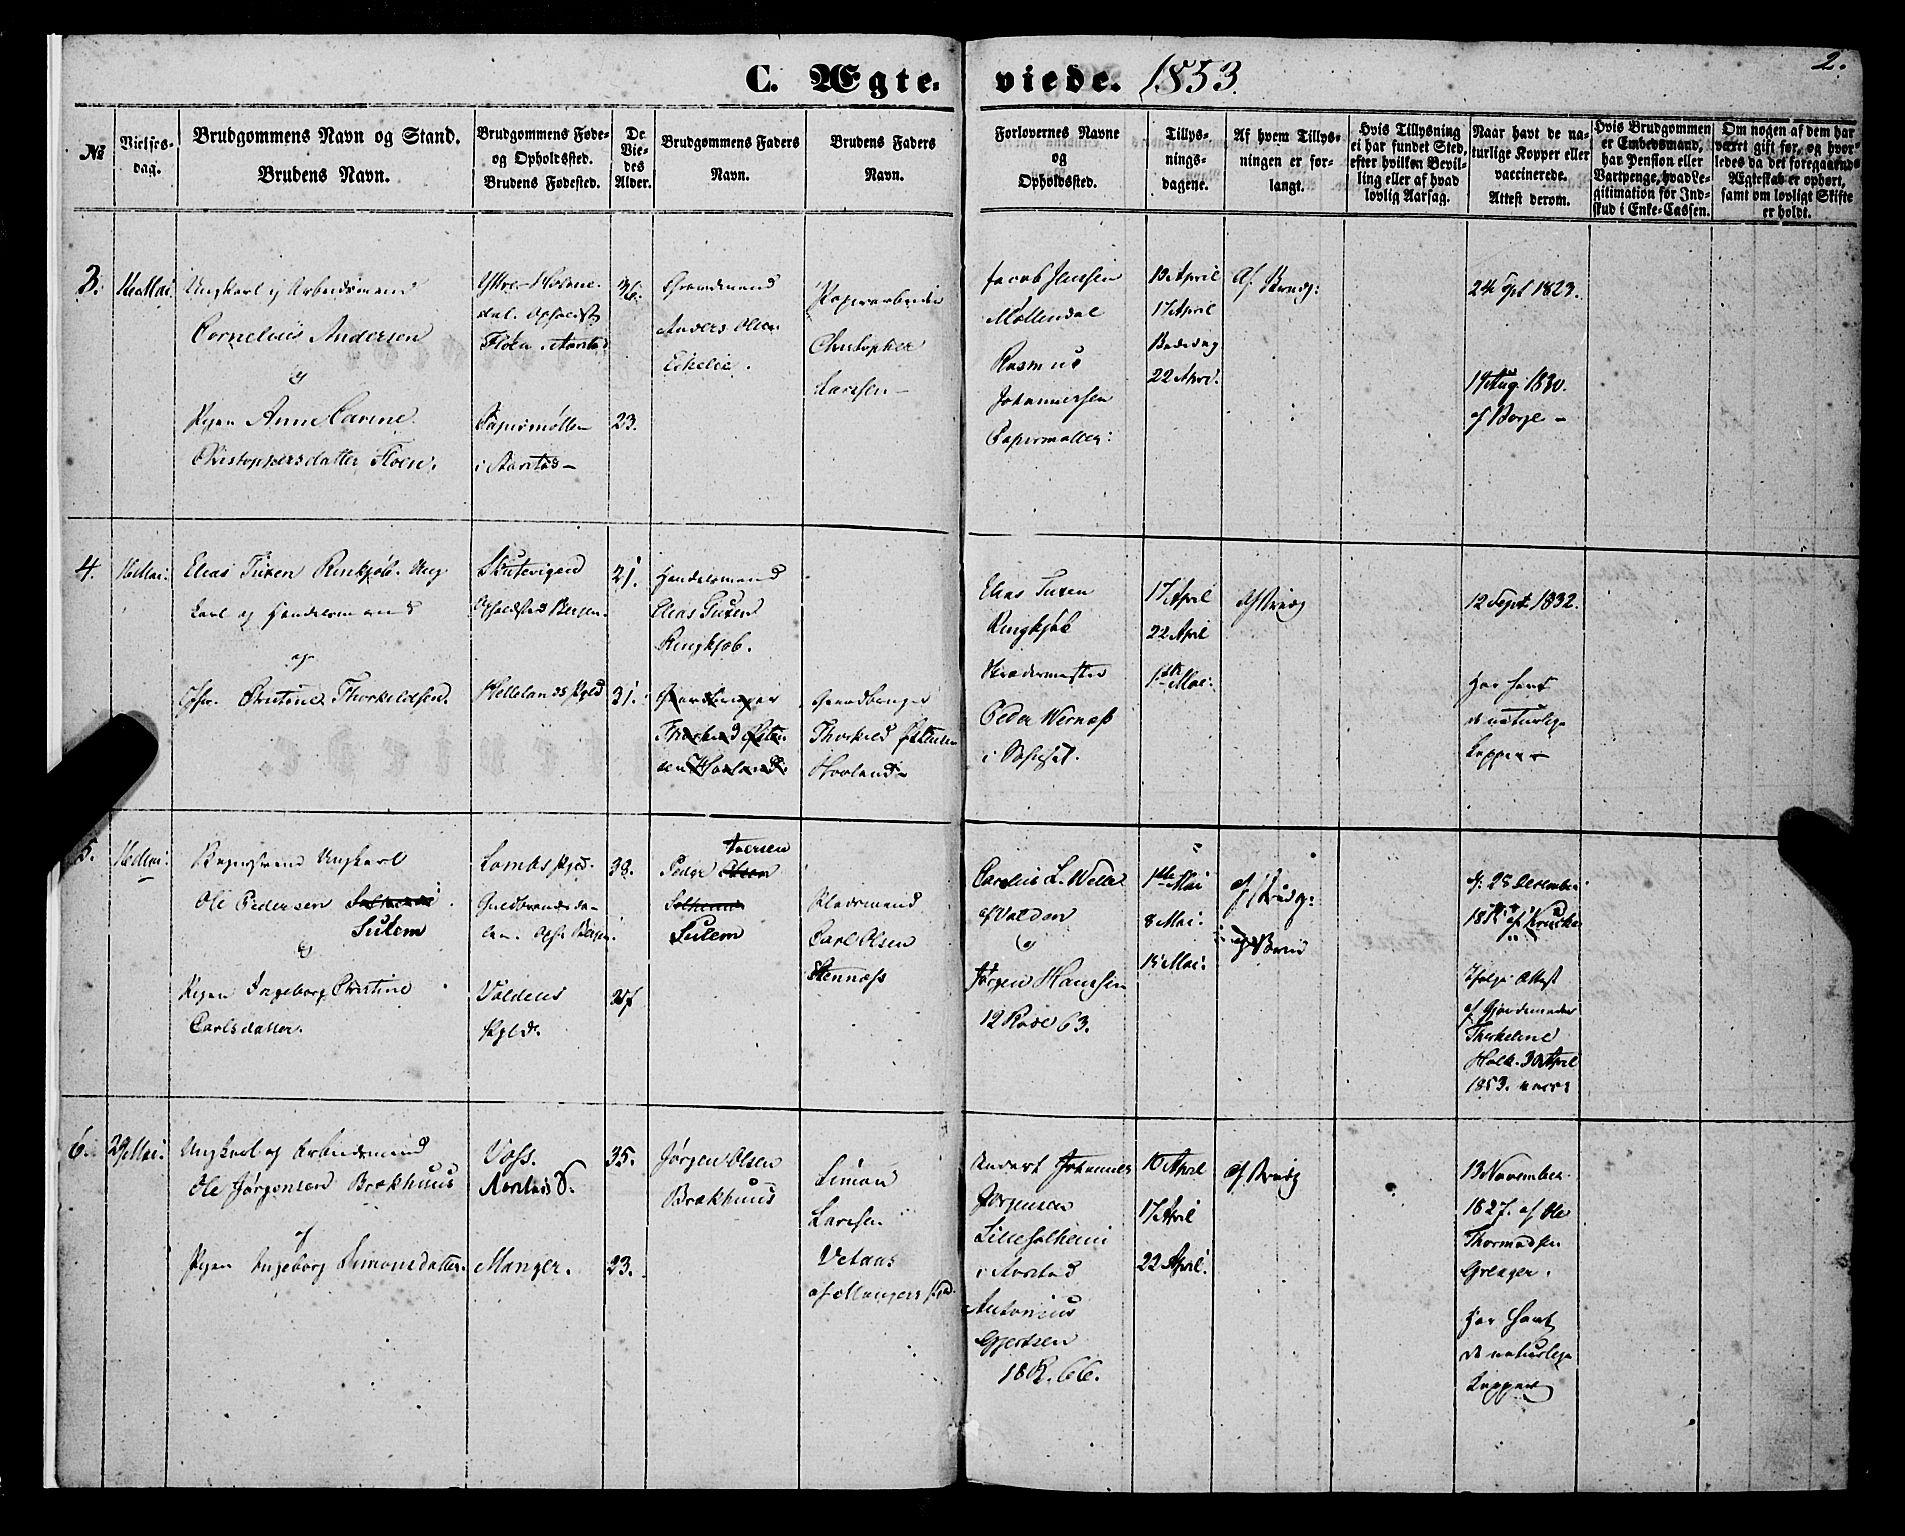 C. Ægte- viede. 1853.
2.
№
Vielses-
dag.
Brudgommens Navn og Stand.
Brudens Navn.
Brudgommens Føde-
og Opholdssted.
Brudens Fødested.
De
Vie-
des
Alder.
Brudgommens Faders
Navn.
Brudens Faders
Navn.
Forlovernes Navne
og
Opholdssted.
Tillys-
nings-
dagene.
Af hvem Tillys-
ningen er for-
langt.
Hvis Tillysning
ei har fundet Sted,
efter hvilken Bevil-
ling eller af hvad
lovlig Aarsag.
Naar havt de na-
turlige Kopper eller
vaccinerede.
Attest derom.
Hvis Brudgommen
er Embedsmand,
har Pension eller
Vartpenge, hvad Le-
gitimation for Ind-
skud i Enke-Cassen.
Om nogen af dem har
været gift før, og hvor-
ledes da det foregaaende
Ægteskab er ophørt,
samt om lovligt Skifte
er holdt.
3.
Ungkarl og Arbeidsmand
Cornelius Andersen
og
Pigen Anne Carine
Christophersdatter Floen.
Ytre-Holme-
dal. Opholdst
Floen i Aarstad
Papirmøllen
i Aarstad
36.
23.
Gaardmand
Anders Olsen
Eikelie.
Papirarbeider
Christopher
Larsen
Jacob Jensen
Møllendal
Rasmus
Johannessen
Papirmøllen:
13 April
17 April
Bededag
22 April
Af Brudg:
24 Spt 1823.
14 Aug. 1830.
af Borge
4.
16 Mai.
Elias Tuxen Rinkjøb. Ung
karl og Handelsmand
og
Christine Thorkildsen.
Skutevigen
Opholdsted Bergen.
Hellelands Pgld
21.
31.
Handelsmand
Elias Tuxen
Ringkjøb.
Gaardbruger
Thorkild Østen
sen Hovland.
Gaardbruger
Thorkild Østensen
Hovland
Elias Tuxen
Ringkjøb
Skrædermester
Peder Wernøss
17 April
22 April
1ste Mai:
Af Brudg
12 Sept 1832.
Har havt
de naturlige
Kopper
5.
16 Mai:
Ungkarl
Ole Pedersen Solheim
Sulem
og
Pigen Ingeborg Christine
Carlsdatter.
Lombs Pgld.
Guldbrandsda-
len. Ophst Bergen.
Voldens
Pgld.
38.
27
Peder Olsen
Iversen
Solheim
Sulem
Pladsmand
Carl Olsen
Stennæss
Carolius L. Welle
af Volden
og
Jørgen Hansen
12 Rode 63.
1ste Mai
8 Mai:
15 Mai:
af Brudg:
25 December
Ifølge Attest
af Gjordemoder
Thorkeline
Holk. 30 April
1853. vacc:
6.
29 Mai:
Ungkarl og Arbeidsmand
Ole Jørgensen Brækhuus
og
Pigen Ingeborg Simonsdatter
Voss.
Aarstad S.
Manger.
35.
23.
Jørgen Olsen
Brækhuus
Simon
Larsen
Vetaas
af Mangers Pgld.
Johannes
Jørgensen
Lillesolheim
i Aarstad
Antonius
Gjertsen
18 R. 66.
10 April
17 April
22 April:
af Brudg
13 November
1827. af Ole
Thormodsen
Greager.
Har havt
de naturlige
Kopper